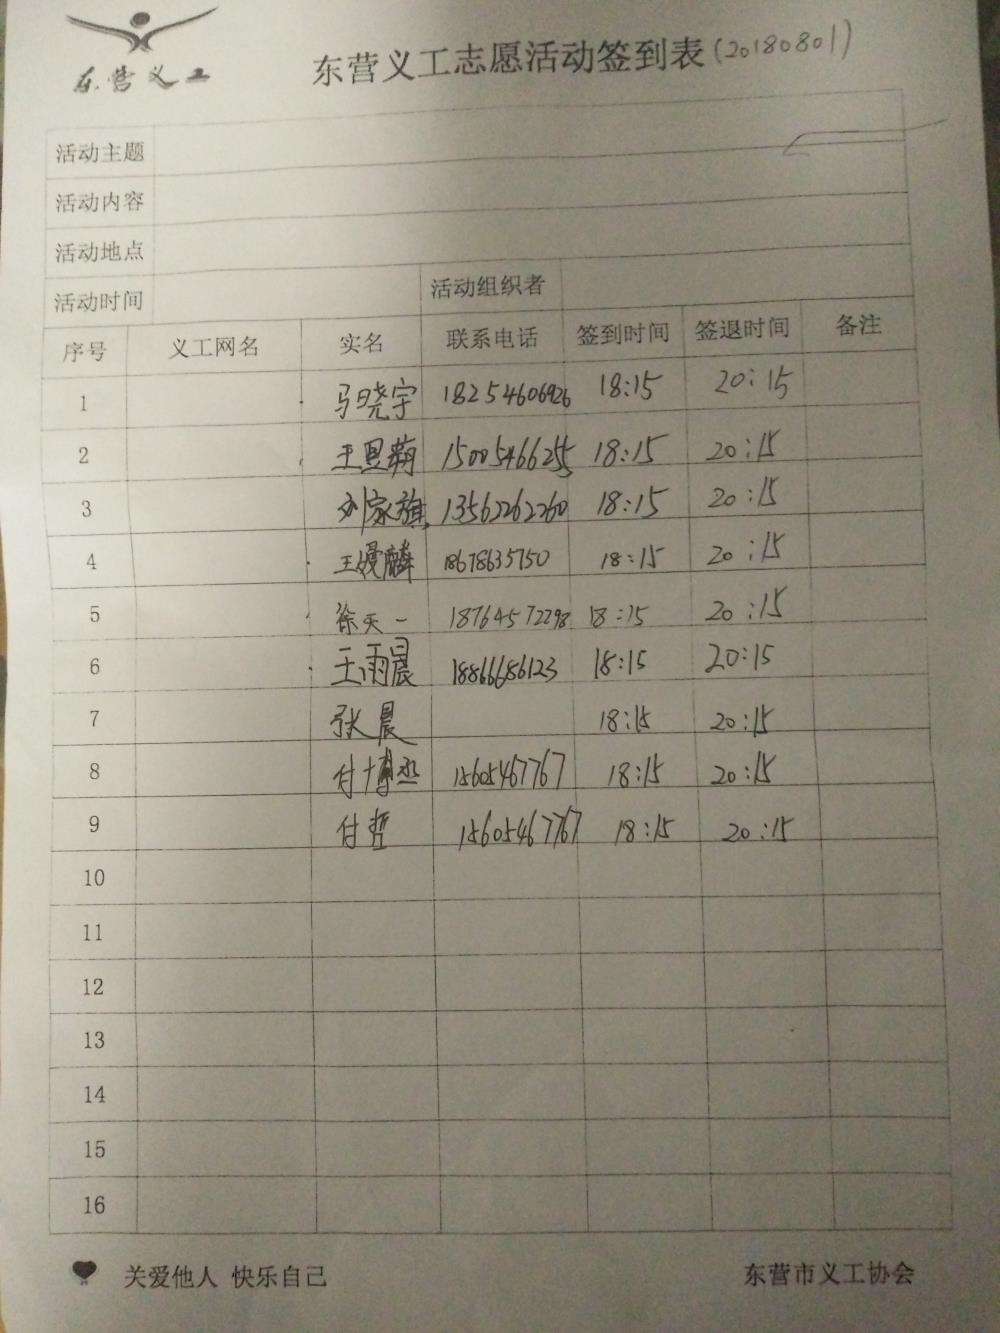 东营义工
东营义工志愿活动签到表(20180801)
活动主题
活动内容
活动地点
活动时间 活动组织者
序号 义工网名 实名 联系电话 签到时间 签退时间 备注
1 马晓宇 18254606926 18:15 20:15
2 王 15005466255 18:15 20:15
3 刘家旗 13562262260 18:15 20:15
4 王嫚麟 18678635750 18:15 20:15
5 徐天一 18764572298 18:15 20:15
6 王雨晨 18866686123 18:15 20:15
7 张晨 18:15 20:15
8 付博烝 15605467767 18:15 20:15
9 付哲 15605467767 18:15 20:15
10
11
12
13
14
15
16
关爱他人 快乐自己 东营市义工协会